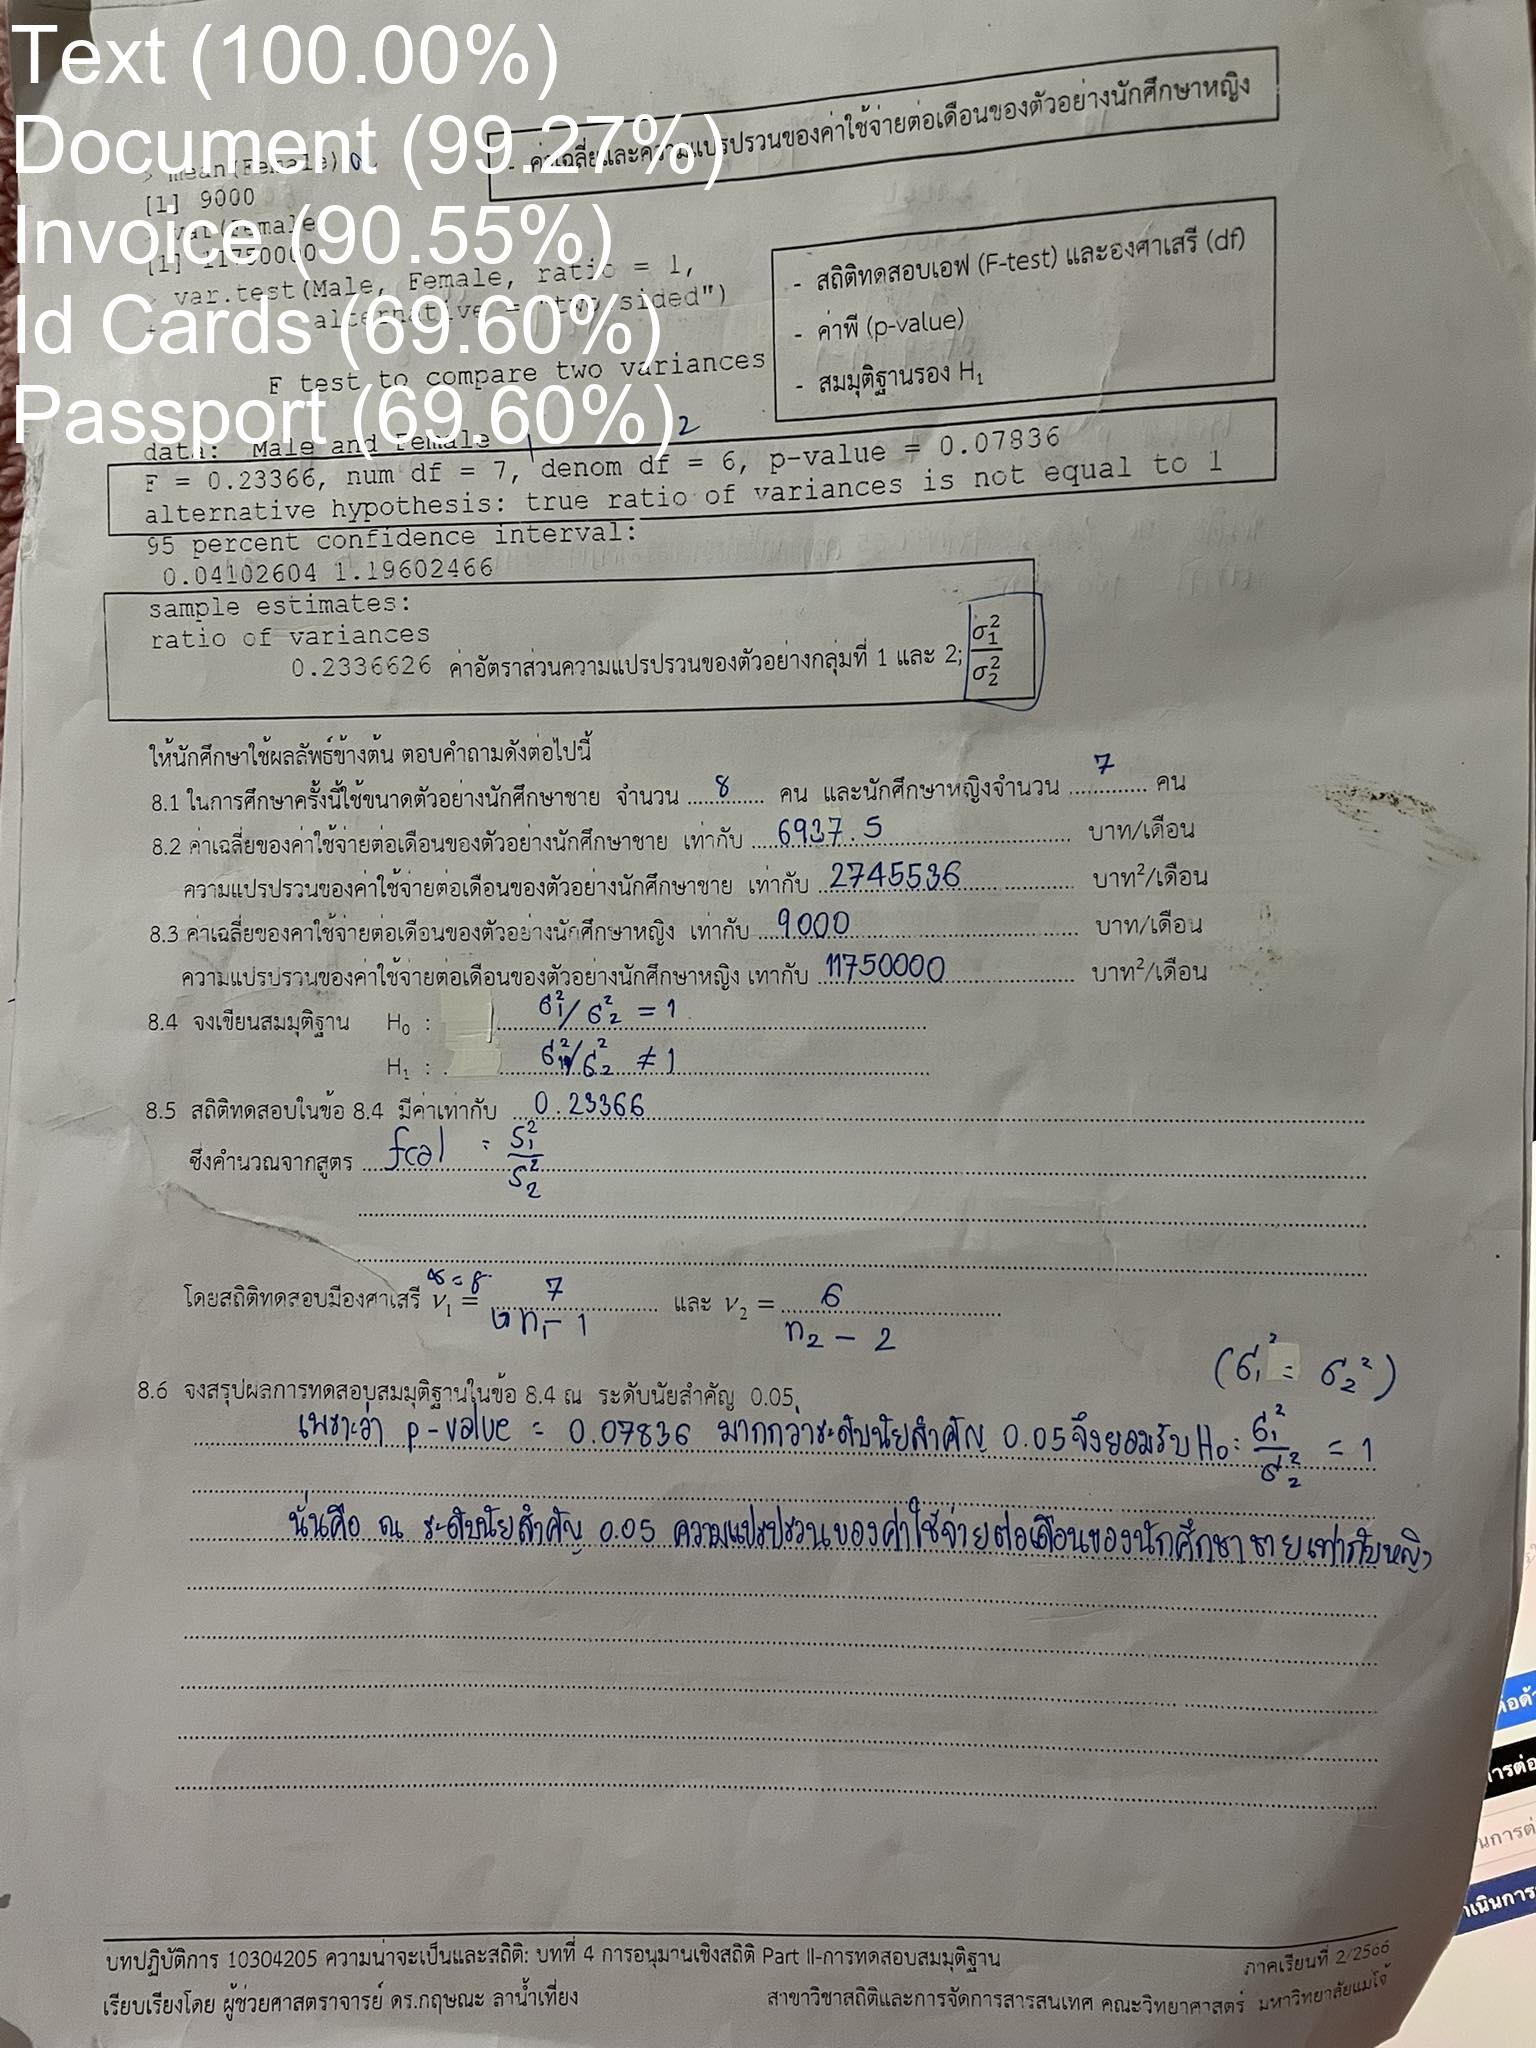 Text (100.00%)
Document (99.27%)
Invoice (90.55%)
Id Cards (69.60%)
Passport (69.60%)
- ค่าเฉลี่ยและความแปรปรวนของค่าใช้จ่ายต่อเดือนของตัวอย่างนักศึกษาหญิง
> mean(Female)
[1] 9000
> var(Female
[1] 11750000
> var.test(Male, Female, ratio = 1,
+ alternative = "two.sided")
- สถิติทดสอบเอฟ (F-test) และองศาเสรี (df)
- ค่าพี (p-value)
- สมมุติฐานรอง H₁
F test to compare two variances
data: Male and Female
1 2
F = 0.23366, num df = 7, denom df = 6, p-value = 0.07836
alternative hypothesis: true ratio of variances is not equal to 1
95 percent confidence interval:
0.04102604 1.19602466
sample estimates:
ratio of variances
0.2336626 ค่าอัตราส่วนความแปรปรวนของตัวอย่างกลุ่มที่ 1 และ 2; σ₁²/σ₂²
ให้นักศึกษาใช้ผลลัพธ์ข้างต้น ตอบคำถามดังต่อไปนี้
8.1 ในการศึกษาครั้งนี้ใช้ขนาดตัวอย่างนักศึกษาชาย จำนวน 8 คน และนักศึกษาหญิงจำนวน 7 คน
8.2 ค่าเฉลี่ยของค่าใช้จ่ายต่อเดือนของตัวอย่างนักศึกษาชาย เท่ากับ 6937.5 บาท/เดือน
ความแปรปรวนของค่าใช้จ่ายต่อเดือนของตัวอย่างนักศึกษาชาย เท่ากับ 2745536 บาท²/เดือน
8.3 ค่าเฉลี่ยของค่าใช้จ่ายต่อเดือนของตัวอย่างนักศึกษาหญิง เท่ากับ 9000 บาท/เดือน
ความแปรปรวนของค่าใช้จ่ายต่อเดือนของตัวอย่างนักศึกษาหญิง เท่ากับ 11750000 บาท²/เดือน
8.4 จงเขียนสมมุติฐาน H₀ : σ₁²/σ₂² = 1
H₁ : σ₁²/σ₂² ≠ 1
8.5 สถิติทดสอบในข้อ 8.4 มีค่าเท่ากับ 0.23366
ซึ่งคำนวณจากสูตร fcal = S₁²/S₂²
โดยสถิติทดสอบมีองศาเสรี ν₁ = 7 และ ν₂ = 6
n₁ - 1 n₂ - 2
(σ₁² = σ₂²)
8.6 จงสรุปผลการทดสอบสมมุติฐานในข้อ 8.4 ณ ระดับนัยสำคัญ 0.05
เพราะว่า p-value = 0.07836 มากกว่าระดับนัยสำคัญ 0.05 จึงยอมรับ H₀: σ₁²/σ₂² = 1
นั่นคือ ณ ระดับนัยสำคัญ 0.05 ความแปรปรวนของค่าใช้จ่ายต่อเดือนของนักศึกษาชายเท่ากับหญิง
บทปฏิบัติการ 10304205 ความน่าจะเป็นและสถิติ: บทที่ 4 การอนุมานเชิงสถิติ Part II-การทดสอบสมมุติฐาน
ภาคเรียนที่ 2/2566
เรียบเรียงโดย ผู้ช่วยศาสตราจารย์ ดร.กฤษณะ ลาน้ำเที่ยง
สาขาวิชาสถิติและการจัดการสารสนเทศ คณะวิทยาศาสตร์ มหาวิทยาลัยแม่โจ้